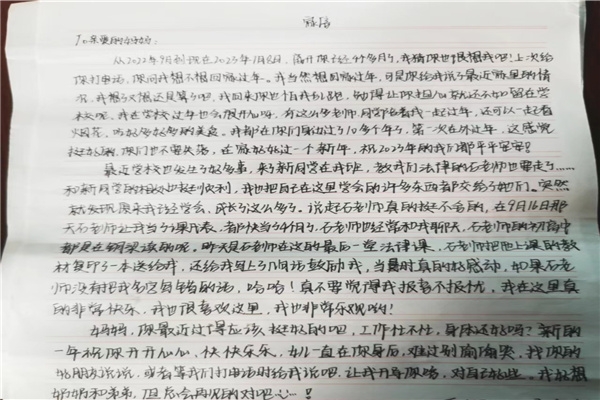 家信
To亲爱的妈妈：
从2022年9月到现在2023年1月8日，离开你已经4个多月了，我猜你也很想我吧！上次给
你打电话，你问我想不想回嗨过年。我当然想回嗨过年，可是你给我说了最近嗨里的情
况，我想了又想还是算了吧，我回来你也怕我乱跑，免得让你担心就还不如留在学
校呢，我在学校过年也会很开心呀，有这么多老师、同学陪着我一起过年，还可以一起看
烟花，吃好多好多的美食。我都在你们身边过了10多个年了，第一次在外过年，这感觉
挺好的你们也不要失落，在嗨好好过一个新年，祝2023年的我们都平平安安！
最近学校也发生了好多事，来了新同学在我班，教我们法律的石老师也要走了……
和新同学的相处也挺顺利，我也把自己在这里学会的许多东西都交给了她们。突然
就发现原来我已经学会，成长了这么多了。说起石老师真的挺不舍的，在9月16日那
天石老师让我当了课代表，都快当了4个月，石老师也经常和我聊天，石老师的初高中
都是在钢梁读的呢，昨天是石老师在这的最后一堂法律课，石老师把他上课的教
材复印了一本送给我，还给我写上了几句话鼓励我，当时真的好感动，如果石老
师没有把我名字写错的话，哈哈！真不要觉得我报喜不报忧，我在这里真
的非常快乐，我也很喜欢这里，我也非常乐观哟！
妈妈，你最近过得应该挺好的吧，工作忙不忙，身体还好吗？新的
一年祝你开开心心，快快乐乐，女儿一直在你身后，难过别偷偷哭，找你的
好朋友说说，或者等我们打电话时给我说吧，让我开导你哈，对自己好些。我好想
奶奶和弟弟，但总会再见的对吧！